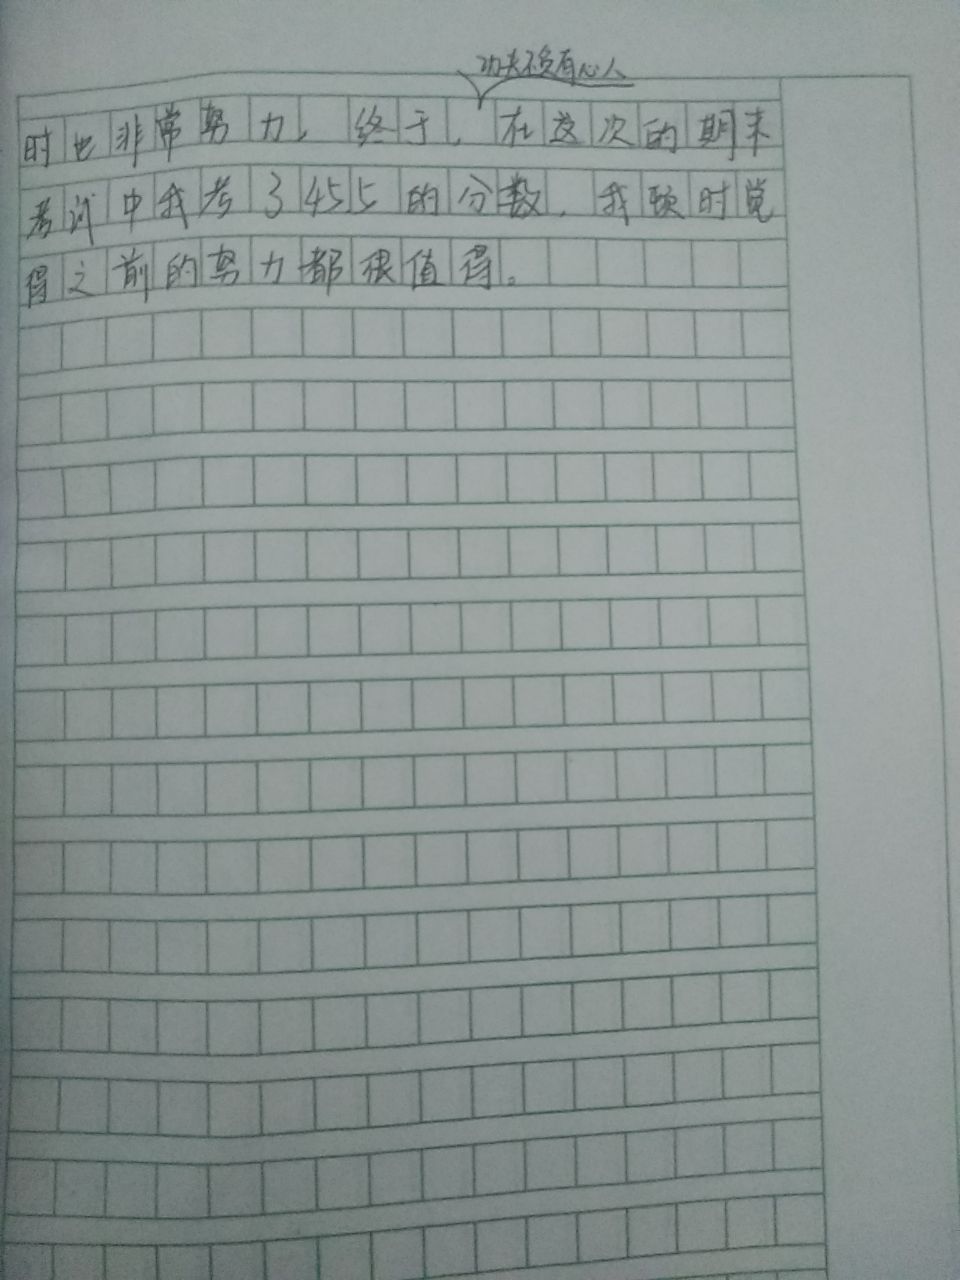 功夫不负有心人
时也非常努力,终于,在这次的期末
考试中我考了455的分数,我顿时觉
得之前的努力都很值得。